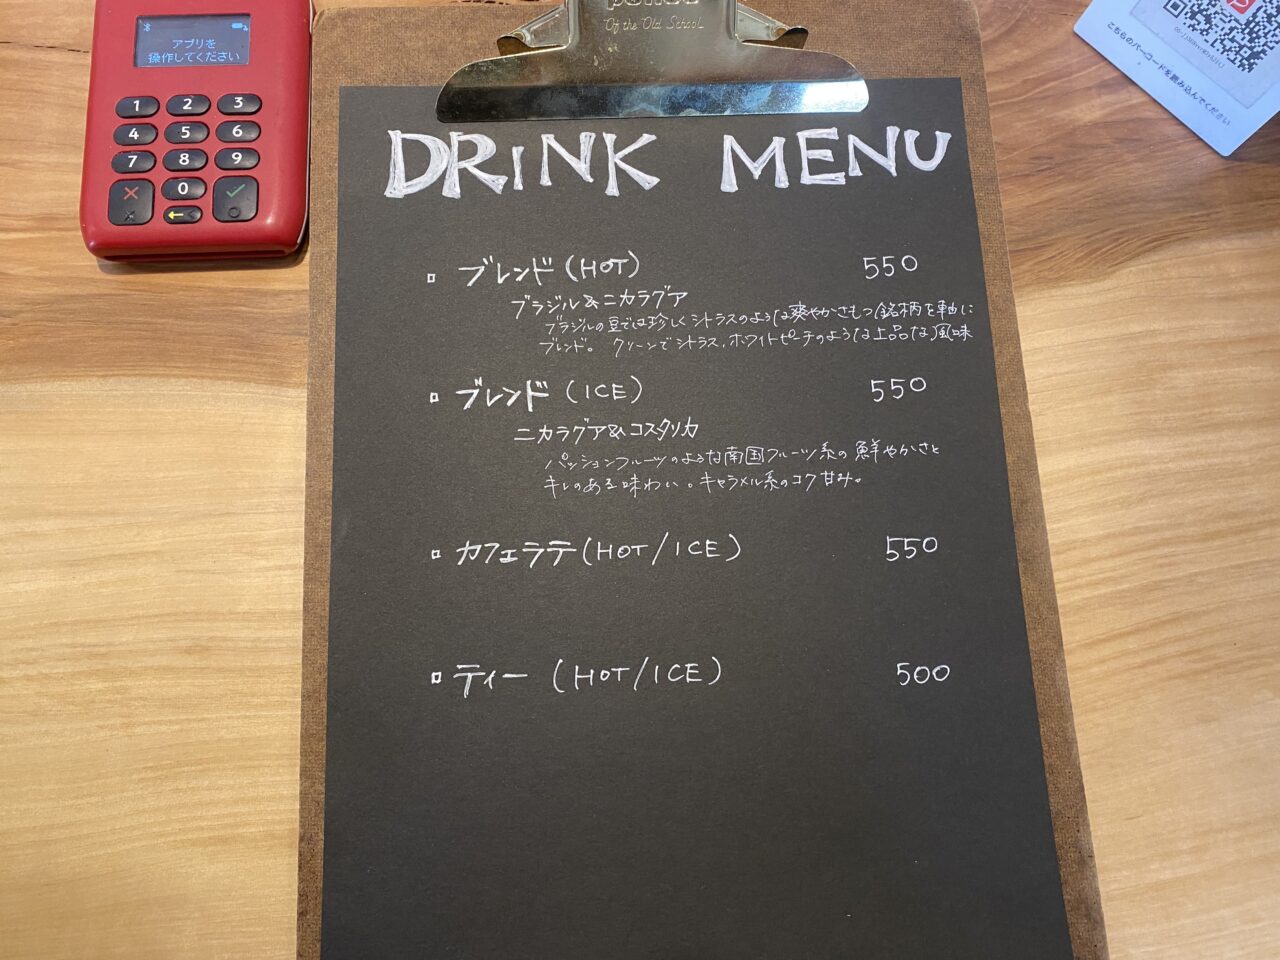 Of the Old School
アプリを
操作してください
1 2 3
4 5 6
7 8 9
0
こちらのバーコードを読み込んでください
DRINK MENU
ブレンド (HOT) 550
ブラジル&ニカラグア
ブラジルの豆では珍しくシトラスのような爽やかさもつ銘柄を軸に
ブレンド。 クリーンでシトラス、ホワイトピーチのような上品な風味
ブレンド (ICE) 550
ニカラグア&コスタリカ
パッションフルーツのような南国フルーツ系の鮮やかさと
キレのある味わい。キャラメル系のコク甘み。
カフェラテ (HOT/ICE) 550
ティー (HOT/ICE) 500